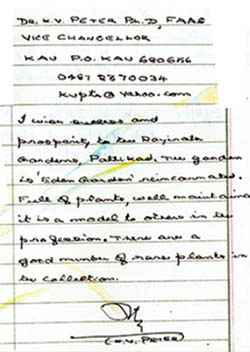 DR. K.V. PETER Ph.D, FAAS
VICE CHANCELLOR
KAU P.O. KAU 680656
0487 2370034
kvptr@yahoo.com
I wish success and
prosperity to the Rajinals
Gardens, Pattikad. The garden
is 'Eden Garden' reincarnated.
Full of plants, well maintained
it is a model to others in the
profession. There are a
good number of rare plants in
the collection.
(K.V. PETER)